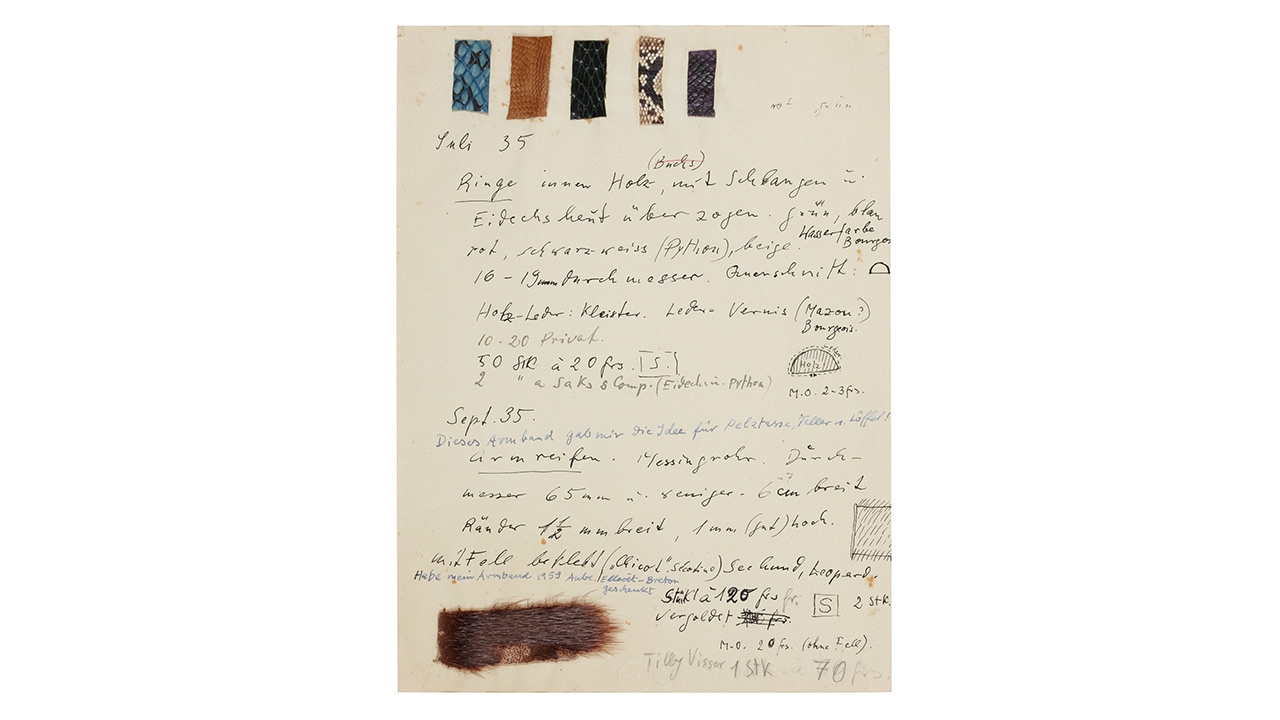 rot grün
Juli 35
(Buchs)
Ringe innen Holz, mit Schlangen u.
Eidechshaut überzogen. grün, blau
Wasserfarbe
Bourgeois
rot, schwarz-weiss (Python), beige.
16 - 19mm Durchmesser. Querschnitt:
Holz-Leder: Kleister. Leder = Vernis (Mazon?)
Bourgeois.
10-20 Privat.
50 Stk à 20 frs. S.
Leder
Holz
2 " a Saks & Comp. (Eidech u. Python)
M.O. 2-3 frs.
Sept. 35.
Dieses Armband gab mir die Idee für Pelztasse, Teller u. Löffel!
Armreifen. Messingrohr. Durch-
messer 65 mm u. weniger. 6-7 cm breit
Ränder 1 1/2 mm breit, 1 mm (gut) hoch.
mit Fell beklebt Seehund, Leopard.
Habe mein Armband 1959 Aube Elléouët-Breton
geschenkt
Stück à 120 frs fr. S 2 Stk.
vergoldet
M.O. 20 frs. (ohne Fell).
Tilly Visser 1 Stk à 70 frs.